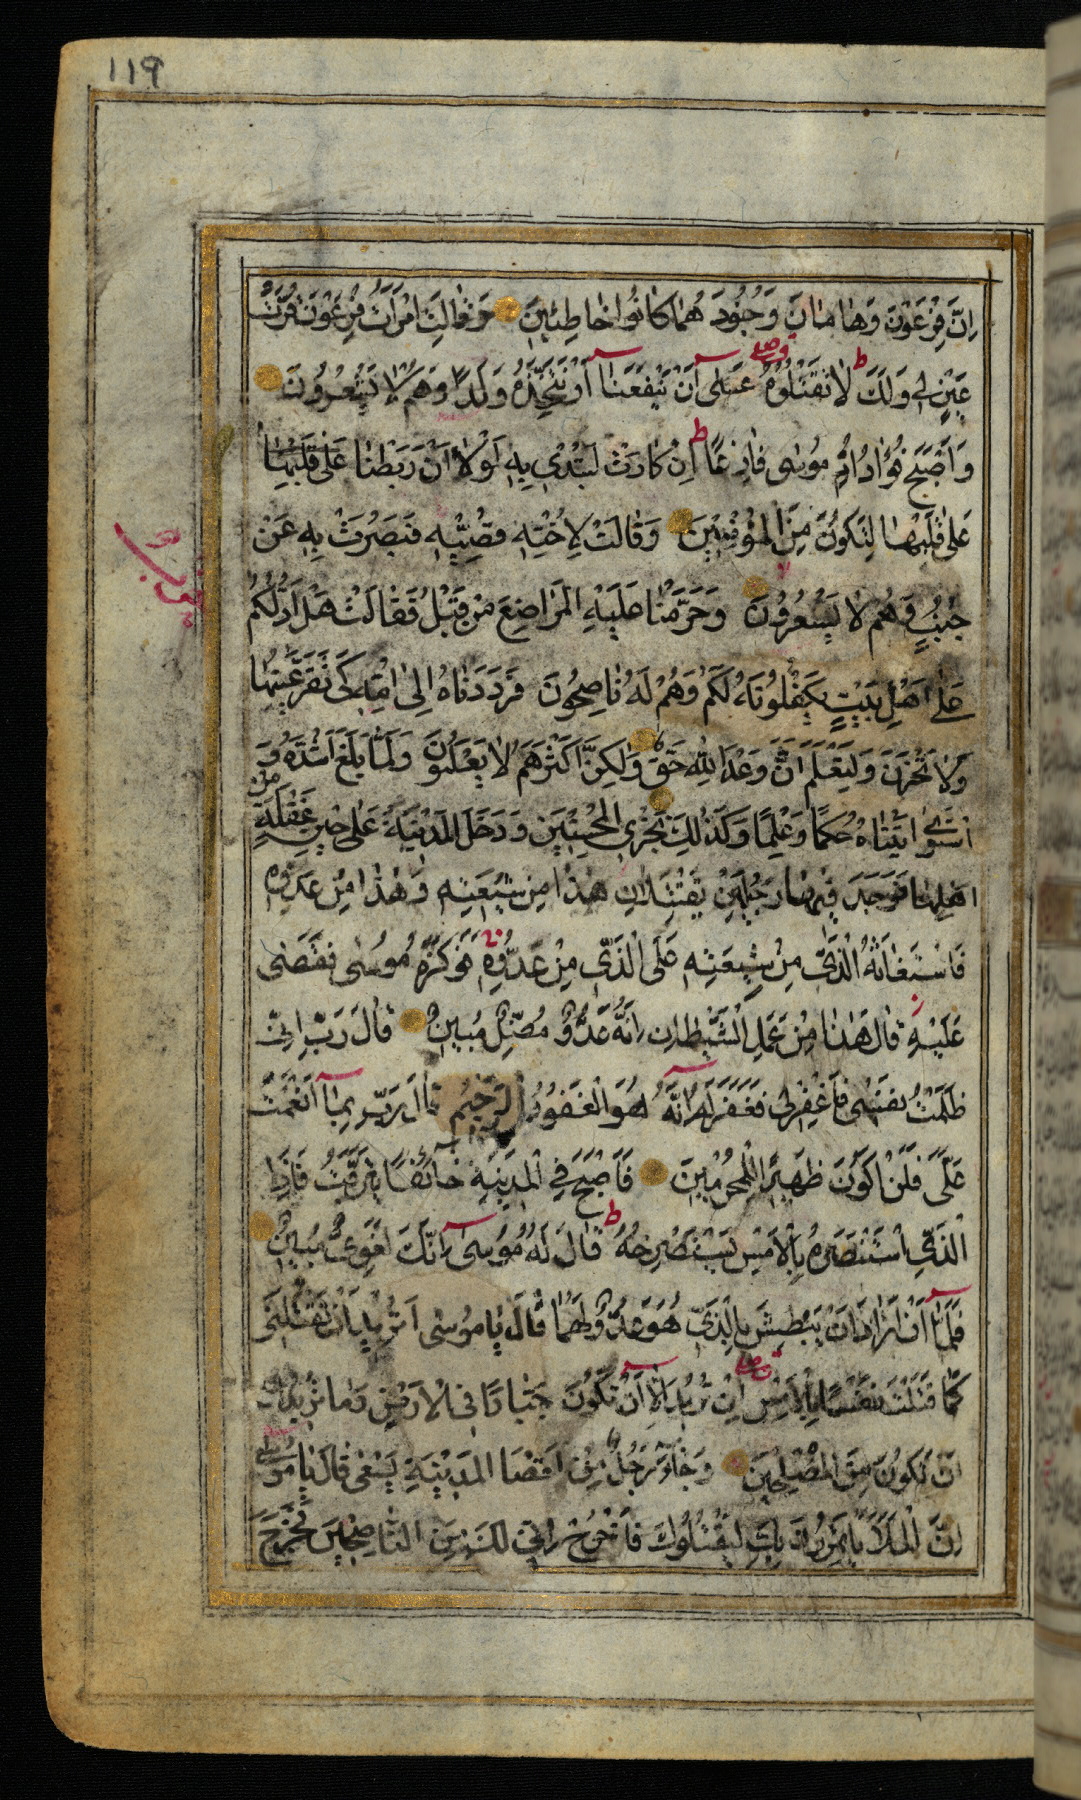 119
اِنَّ فِرْعَوْنَ وَهَامَانَ وَجُنُودَ هُمَا كَانُوا خَاطِئِينَ وَقَالَتِ امْرَأَتُ فِرْعَوْنَ قُرَّتُ
عَيْنٍ لِي وَلَكَ لَا تَقْتُلُوهُ عَسَى أَنْ يَنْفَعَنَا أَوْ نَتَّخِذَهُ وَلَدًا وَهُمْ لَا يَشْعُرُونَ
وَأَصْبَحَ فُؤَادُ أُمِّ مُوسَى فَارِغًا اِنْ كَادَتْ لَتُبْدِي بِهِ لَوْلَا أَنْ رَبَطْنَا عَلَى قَلْبِهَا
عَلَى قَلْبِهَا لِتَكُونَ مِنَ الْمُؤْمِنِينَ وَقَالَتْ لِاُخْتِهِ قُصِّيهِ فَبَصُرَتْ بِهِ عَنْ
جُنُبٍ وَهُمْ لَا يَشْعُرُونَ وَحَرَّمْنَا عَلَيْهِ الْمَرَاضِعَ مِنْ قَبْلُ فَقَالَتْ هَلْ اَدُلُّكُمْ
عَلَى اَهْلِ بَيْتٍ يَكْفُلُونَهُ لَكُمْ وَهُمْ لَهُ نَاصِحُونَ فَرَدَدْنَاهُ اِلَى اُمِّهِ كَيْ تَقَرَّ عَيْنُهَا
وَلَا تَحْزَنَ وَلِتَعْلَمَ اَنَّ وَعْدَ اللهِ حَقٌّ وَلَكِنَّ اَكْثَرَهُمْ لَا يَعْلَمُونَ وَلَمَّا بَلَغَ اَشُدَّهُ وَ
اسْتَوَى اتَيْنَاهُ حُكْمًا وَعِلْمًا وَكَذَلِكَ نَجْزِي الْمُحْسِنِينَ وَدَخَلَ الْمَدِينَةَ عَلَى حِينِ غَفْلَةٍ مِنْ
اَهْلِهَا فَوَجَدَ فِيهَا رَجُلَيْنِ يَقْتَتِلَانِ هَذَا مِنْ شِيعَتِهِ وَهَذَا مِنْ عَدُوِّهِ
فَاسْتَغَاثَهُ الَّذِي مِنْ شِيعَتِهِ عَلَى الَّذِي مِنْ عَدُوِّهِ فَوَكَزَهُ مُوسَى فَقَضَى
عَلَيْهِ قَالَ هَذَا مِنْ عَمَلِ الشَّيْطَانِ اِنَّهُ عَدُوٌّ مُضِلٌّ مُبِينٌ قَالَ رَبِّ اِنِّي
ظَلَمْتُ نَفْسِي فَاغْفِرْ لِي فَغَفَرَ لَهُ اِنَّهُ هُوَ الْغَفُورُ الرَّحِيمُ قَالَ رَبِّ بِمَا أَنْعَمْتَ
عَلَيَّ فَلَنْ اَكُونَ ظَهِيرًا لِلْمُجْرِمِينَ فَأَصْبَحَ فِي الْمَدِينَةِ خَائِفًا يَتَرَقَّبُ فَاِذَا
الَّذِي اسْتَنْصَرَهُ بِالْاَمْسِ يَسْتَصْرِخُهُ قَالَ لَهُ مُوسَى اِنَّكَ لَغَوِيٌّ مُبِينٌ
فَلَمَّا أَنْ اَرَادَ اَنْ يَبْطِشَ بِالَّذِي هُوَ عَدُوٌّ لَهُمَا قَالَ يَا مُوسَى اَتُرِيدُ اَنْ تَقْتُلَنِي
كَمَا قَتَلْتَ نَفْسًا بِالْاَمْسِ اِنْ تُرِيدُ اِلَّا اَنْ تَكُونَ جَبَّارًا فِي الْاَرْضِ وَمَا تُرِيدُ
اَنْ تَكُونَ مِنَ الْمُصْلِحِينَ وَجَاءَ رَجُلٌ مِنْ اَقْصَا الْمَدِينَةِ يَسْعَى قَالَ يَا مُوسَى
اِنَّ الْمَلَاَ يَأْتَمِرُونَ بِكَ لِيَقْتُلُوكَ فَاخْرُجْ اِنِّي لَكَ مِنَ النَّاصِحِينَ فَخَرَجَ